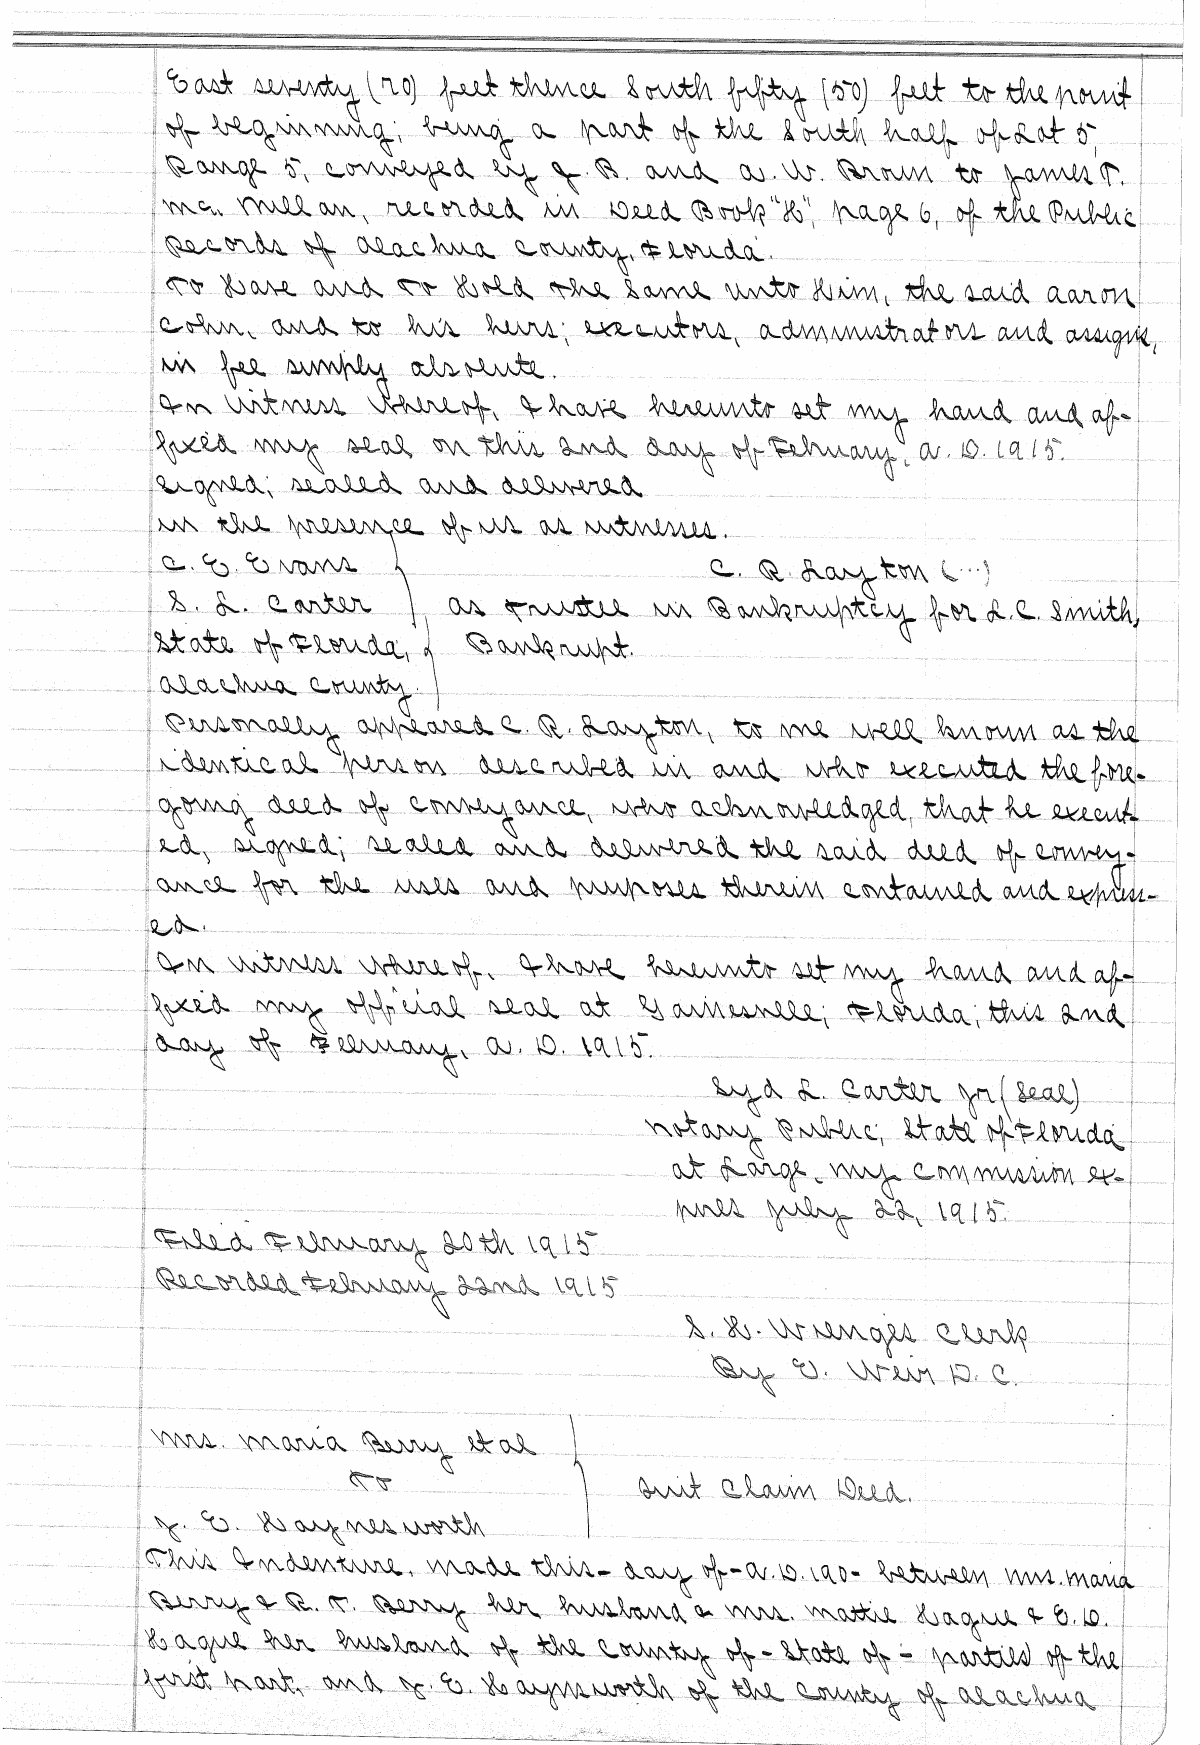 East seventy (70) feet thence South fifty (50) feet to the point
of beginning; being a part of the South half of Lot 5,
Range 5, conveyed by J. B. and A. W. Brown to James T.
Mc. Millan, recorded in Deed Book "H", page 6, of the Public
Records of Alachua County, Florida.
To Have and To Hold the Same unto Him, the said Aaron
Cohn, and to his heirs; executors, administrators and assigns,
in fee simply absolute.
In Witness Whereof, I have hereunto set my hand and af-
fixed my seal on this 2nd day of February, A. D. 1915.
Signed; sealed and delivered
in the presence of us as witnesses.
C. E. Evans
C. R. Layton (...)
S. L. Carter
as Trustee in Bankruptcy for L. C. Smith,
State of Florida,
Bankrupt.
Alachua County.
Personally appeared C. R. Layton, to me well known as the
identical person described in and who executed the fore-
going deed of conveyance, who acknowledged, that he execut-
ed, signed; sealed and delivered the said deed of convey-
ance for the uses and purposes therein contained and express-
ed.
In witness whereof, I have hereunto set my hand and af-
fixed my official seal at Gainesville; Florida; this 2nd
day of February, A. D. 1915.
Syd L. Carter Jr (Seal)
Notary Public, State of Florida
at Large, my commission ex-
pires July 22, 1915.
Filed February 20th 1915
Recorded February 22nd 1915
S. H. Wienges Clerk
By E. Weir D. C.
Mrs. Maria Berry et al
To
Quit Claim Deed.
J. E. Haynesworth
This Indenture, made this - day of - A. D. 190- between Mrs. Maria
Berry & R. T. Berry her husband & Mrs. Mattie Hague & E. D.
Hague her husband of the County of - State of - parties of the
first part, and J. E. Haynsworth of the County of Alachua